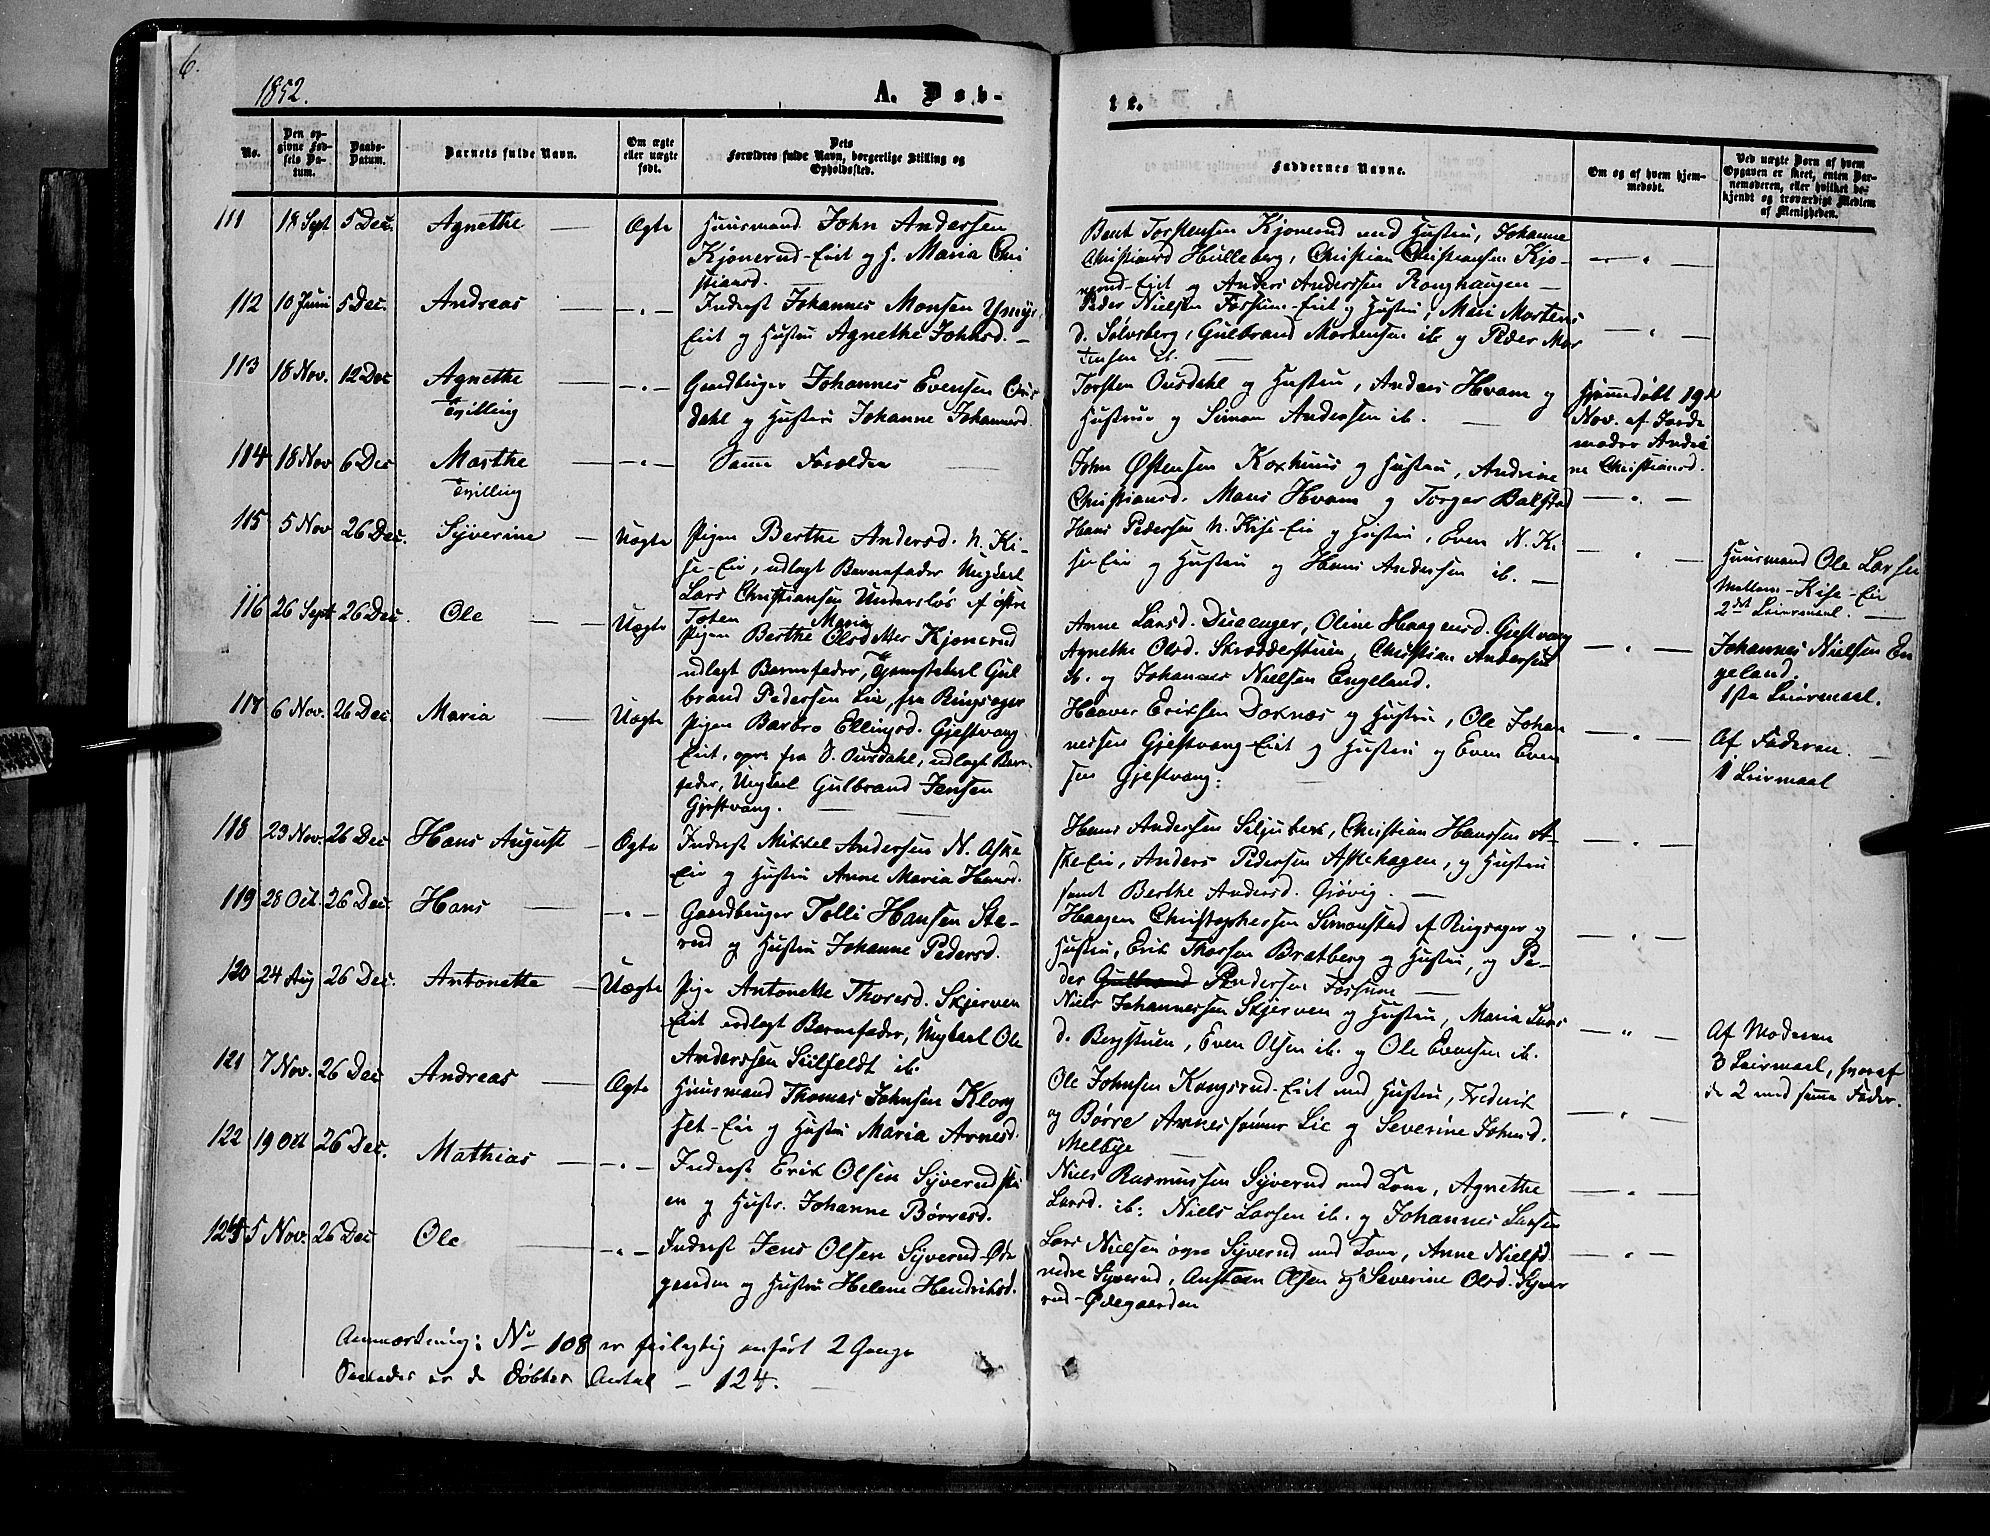 6.
1852.
A. Døb-
te.
No.
Den op-
givne Fød-
sels Da-
tum.
Daabs-
Datum.
Barnets fulde Navn.
Om ægte
eller uægte
født.
Dets
Forældres fulde Navn, borgerlige Stilling og
Opholdssted.
Faddernes Navne.
Om og af hvem hjem-
medøbt.
Ved uægte Børn af hvem
Opgaven er skeet, enten Bar-
nemoderen, eller hvilket be-
kjendt og troværdigt Medlem
af Menigheden.
111 18 Sept 5 Dec. Agnethe — Ægte Huusmand John Andersen
Kjønerud-Eiet og H. Maria Chri
stiansd.
Bent Torstensen Kjonerud med Hustru, Johanne
Christiansd Hulleberg, Christian Christiansen Kjo-
nerud-Eiet og Anders Anderssen Ronghaugen —
112 10 Juni 5 Dec. Andreas —"— Inderst Johannes Monsen
Eiet og Hustru Agnethe Johnsd. —
Peder Nielsen Fossum-Eiet og Hustru, Mari Mortens
d. Sølvsberg, Gulbrand Mortensen ib. og Peder Mor
tensen ib. —
113 18 Nov. 12 Dec Agnethe — —"— Gaardbruger Johannes Evensen Ous
Tvilling
dahl og Hustru Johanne Johannesd.
Torsten Ousdahl og Hustru, Anders Hvam og
Hustrue og Simon Andersen ib. —
Hjemmedøbt 19de
Nov. af Jorde
moder Andri
ne Christiansd.
114 18 Nov 6 Dec Marthe — —"— Samme Forældre —
Tvilling
John Østensen Koxhuus og Hustru, Andrine
Christiansd. Mans Hvam og Torger Balstad
—"—
115 5 Nov 26 Dec. Syverine — Uægte Pigen Berthe Andersd. N. Ki-
se-Eie, udlagt Barnefader Ungkarl
Lars Christiansen Undersløs af østre
Toten
Hans Pedersen N. Kise-Eie og Hustru, Even N. Ki
se-Eie og Hustru og Hans Andersen ib. —
Huusmand Ole Larsen
Mellem-Kise-Eie
2det Leiermaal. —
116 26 Sept 26 Dec. Ole — Uægte Pigen Berthe Maria Olsdatter Kjonerud
udlagt Barnefader, Tjenestekarl Gul
brand Pedersen Lie, fra Ringsager
Anne Larsd. Disenger, Oline Haagensd. Gjestvang
Agnethe Olsd. Skrædderstuen, Christian Andersen
ib. og Johannes Nielsen Engeland.
Johannes Nielsen En
geland.
1ste Leiermaal.
117 6 Nov. 26 Dec. Maria — Uægte Pigen Barbro Ellingsd. Gjestvang
Eiet, opr. fra Ø. Ousdahl, udlagt Barn.
fader, Ungkarl Gulbrand Jensen
Gjestvang. —
Haaver Eriksen Doknæs og Hustru, Ole Johan
nessen Gjestvang-Eiet og Hustru og Even Even
sen Gjestvang.
Af Faderen
1 Leiermaal
118 23 Nov. 26 Dec Hans August — Ægte Inderst Mikkel Andersen N. Aske
Eie og Hustru Anne Maria Hansd.
Hans Andersen Siljuberg, Christian Hanssen A-
ske-Eie, Anders Pedersen Askehagen, og Hustru
samt Berthe Andersd. Gjøvig. —
119 28 Oct. 26 Dec. Hans — —"— Gaardbruger Tolli Hansen Sta-
rud og Hustru Johanne Pedersd.
Haagen Christophersen Simenstad af Ringsager og
Hustru, Erik Thorsen Bratberg og Hustru, og Pe-
der Gulbrand Andersen Fossum —
120 24 Aug 26 Dec. Antonette — Uægte Pige Antonette Thoresd. Skjerven
Eiet udlagt Barnefader, Ungkarl Ole
Anderssen Sulfeldt ib.
Niels Johannessen Skjerven og Hustru, Maria Lars
d. Bergstuen, Even Olsen ib. og Ole Evensen ib.
Af Moderen
3 Leiermaal, hvoraf
de 2 med samme Fader.
121 7 Nov. 26 Dec Andreas — Ægte Huusmand Thomas Johnsen Klong
set-Eie og Hustru Maria Arnesd.
Ole Johnsen Kongsrud-Eiet med Hustru, Frederik
og Børre Arnessønner Lie og Severine Johnsd.
Melbye —
122 19 Oct 26 Dec. Mathias — —"— Inderst Erik Olsen Syverudstu
en og Hustr. Johanne Børresd.
Niels Rasmussen Syverud med Kone, Agnethe
Larsd. ib. Niels Larsen ib. og Johannes Larsen
123 5 Nov. 26 Dec Ole — —"— Inderst Jens Olsen Syverud-Øde
gaarden og Hustru Helene Hendriksd.
Lars Nielsen øvre Syverud med Kone, Anne Nielsd
nedre Syverud, Austren Olsen og Severine Olsd. Syve-
rud-Ødegaarden
Anmærkning: No 108 er feilagtig anført 2 Gange
Saaledes er de Døbtes Antal — 124. —